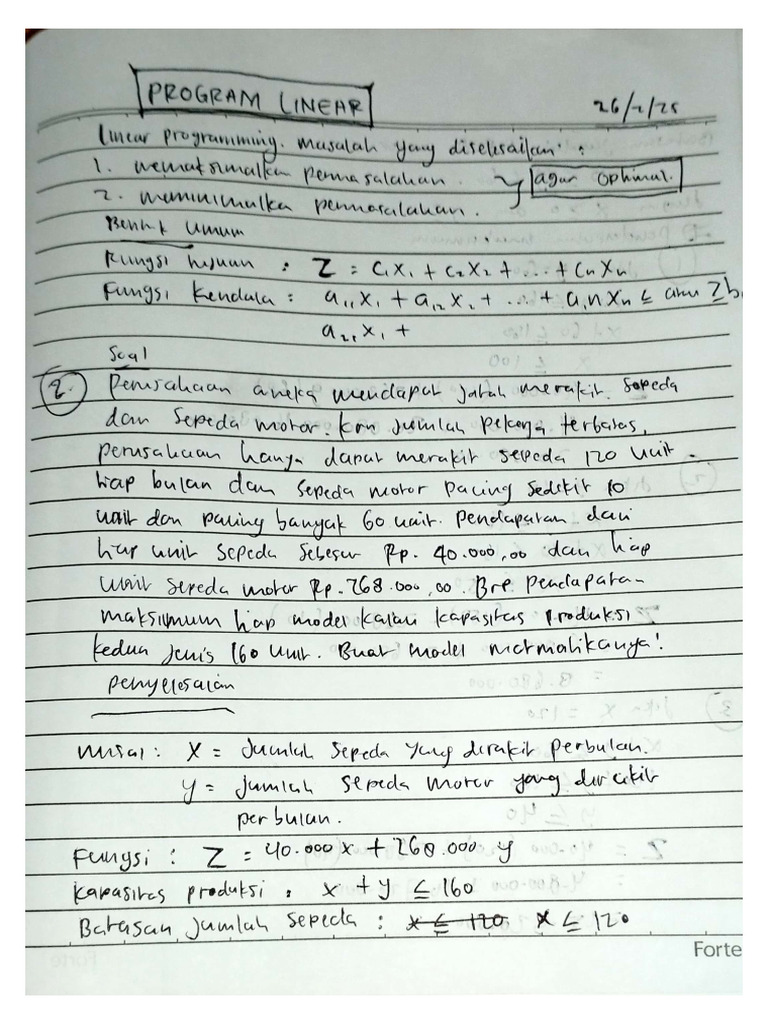 PROGRAM LINEAR
26/2/25
Linear programming. masalah yang diselesaikan :
1. memaksimalkan permasalahan.
agar optimal.
2. meminimulka permasalahan.
Bentuk umum
Fungsi tujuan : Z = C₁X₁ + C₂X₂ + ... + CnXn
Fungsi Kendala : a₁₁X₁ + a₁₂X₂ + ... + a₁nXn ≤ atau ≥ b₁
a₂₁X₁ +
Soal
2. Perusahaan aneka mendapat jatah merakit sepeda
dan sepeda motor. krn jumlah pekerja terbatas,
perusahaan hanya dapat merakit sepeda 120 unit
tiap bulan dan sepeda motor paling sedikit 10
unit dan paling banyak 60 unit. Pendapatan dari
tiap unit sepeda sebesar Rp. 40.000,00 dan tiap
unit sepeda motor Rp. 268.000,00. Brp pendapatan
maksimum tiap model kalau kapasitas produksi
kedua jenis 160 unit. Buat model matmatikanya!
penyelesaian
misal : X = Jumlah sepeda yang dirakit perbulan.
y = jumlah sepeda motor yang dirakit
perbulan.
Fungsi : Z = 40.000 x + 268.000 y
kapasitas produksi : x + y ≤ 160
Batasan jumlah sepeda : x ≤ 120 x ≤ 120
Forte